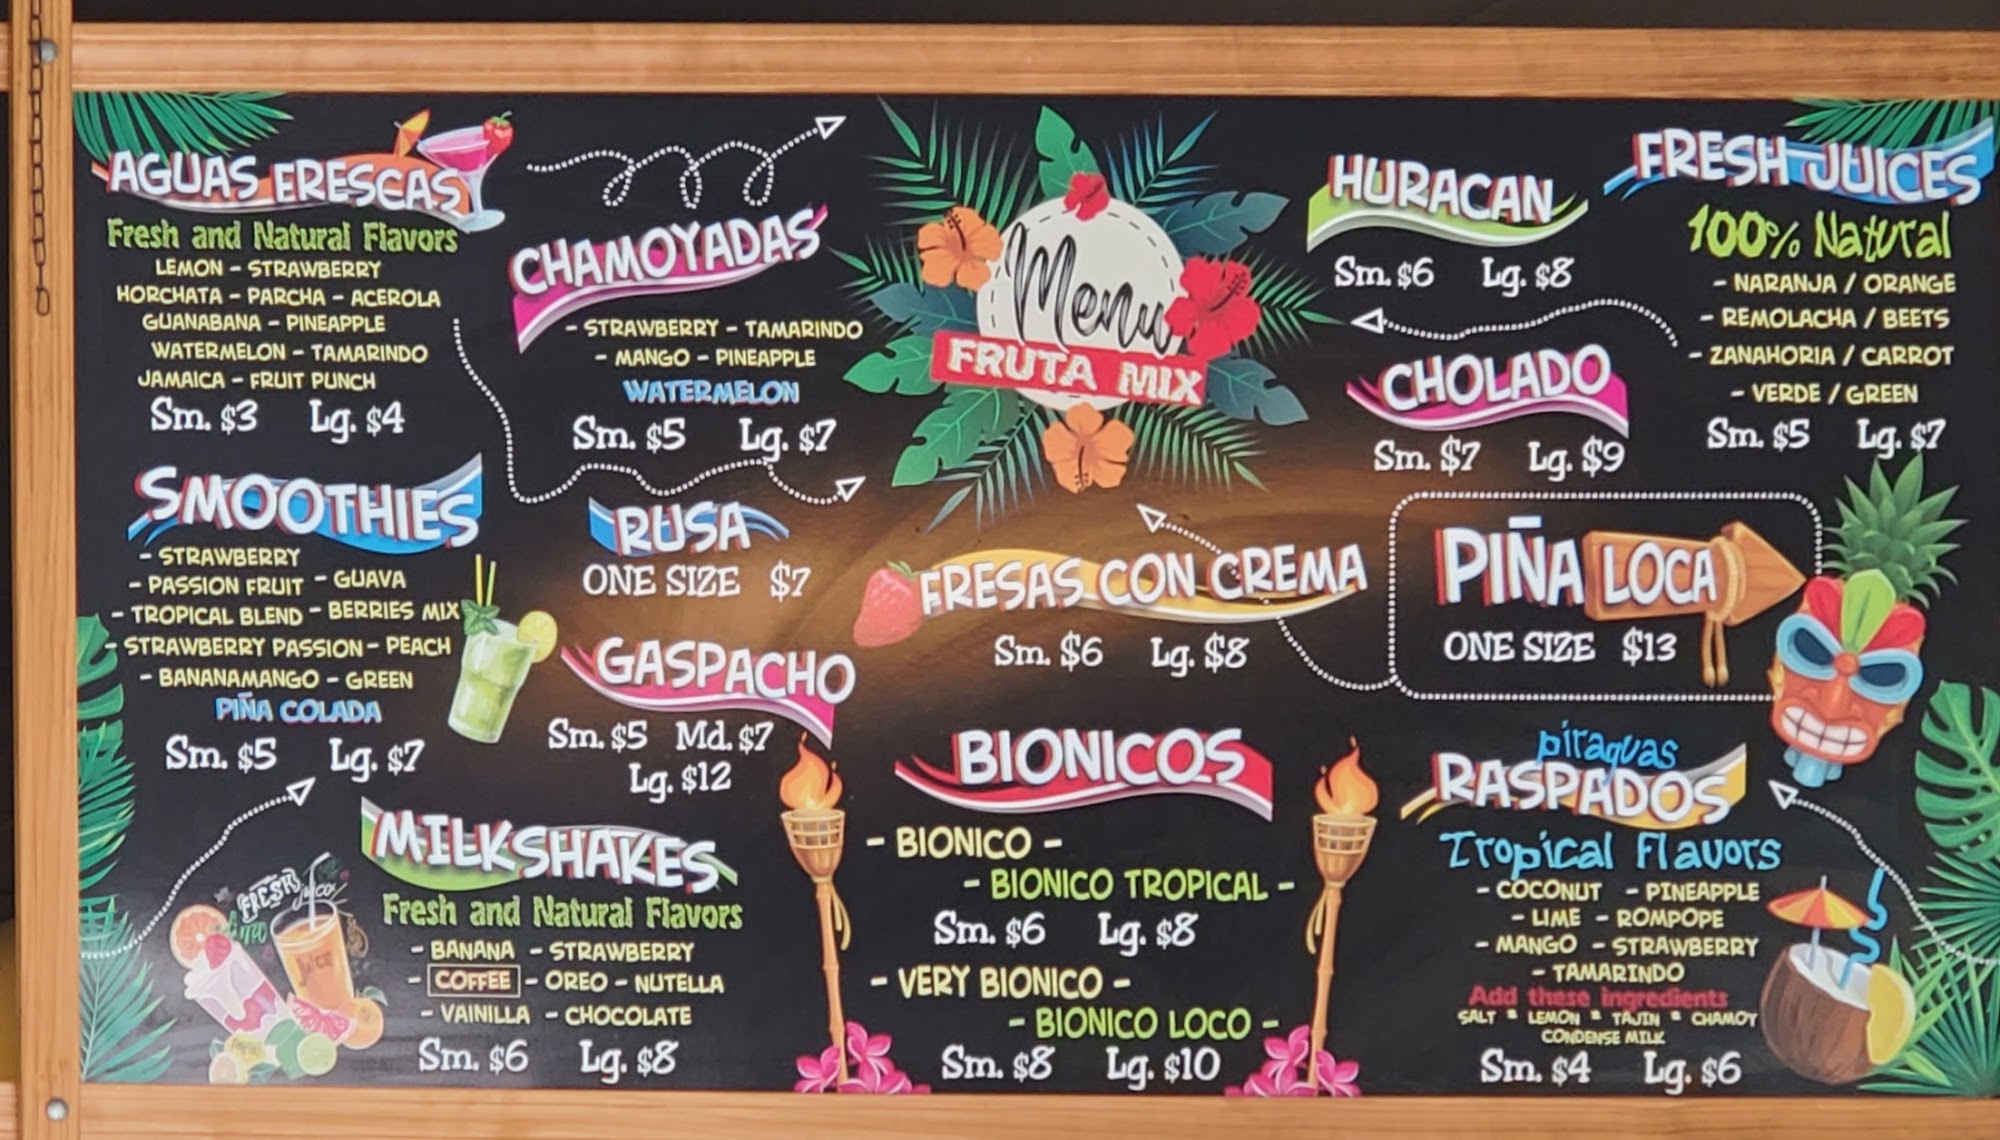 AGUAS FRESCAS
Fresh and Natural Flavors
LEMON - STRAWBERRY
HORCHATA - PARCHA - ACEROLA
GUANABANA - PINEAPPLE
WATERMELON - TAMARINDO
JAMAICA - FRUIT PUNCH
Sm. $3 Lg. $4
SMOOTHIES
- STRAWBERRY
- PASSION FRUIT - GUAVA
- TROPICAL BLEND - BERRIES MIX
- STRAWBERRY PASSION - PEACH
- BANANAMANGO - GREEN
PIÑA COLADA
Sm. $5 Lg. $7
CHAMOYADAS
- STRAWBERRY - TAMARINDO
- MANGO - PINEAPPLE
WATERMELON
Sm. $5 Lg. $7
RUSA
ONE SIZE $7
GASPACHO
Sm. $5 Md. $7
Lg. $12
MILKSHAKES
Fresh and Natural Flavors
- BANANA - STRAWBERRY
- COFFEE - OREO - NUTELLA
- VAINILLA - CHOCOLATE
Sm. $6 Lg. $8
FRESH
Menu
FRUTA MIX
FRESAS CON CREMA
Sm. $6 Lg. $8
BIONICOS
- BIONICO -
- BIONICO TROPICAL -
Sm. $6 Lg. $8
- VERY BIONICO -
- BIONICO LOCO -
Sm. $8 Lg. $10
HURACAN
Sm. $6 Lg. $8
CHOLADO
Sm. $7 Lg. $9
FRESH JUICES
100% Natural
- NARANJA / ORANGE
- REMOLACHA / BEETS
- ZANAHORIA / CARROT
- VERDE / GREEN
Sm. $5 Lg. $7
PIÑA LOCA
ONE SIZE $13
piraguas
RASPADOS
Tropical Flavors
- COCONUT - PINEAPPLE
- LIME - ROMPOPE
- MANGO - STRAWBERRY
- TAMARINDO
Add these ingredients
SALT * LEMON * TAJIN * CHAMOY
CONDENSE MILK
Sm. $4 Lg. $6